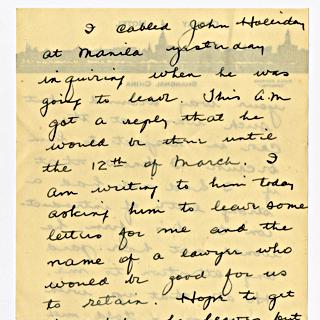 I cabled John Holliday
at Manila yesterday
inquiring when he was
going to leave. This A.M
got a reply that he
would be there until
the 12th of March. I
am writing to him today
asking him to leave some
letters for me and the
name of a lawyer who
would be good for us
to retain. Hope to get
he leaves but